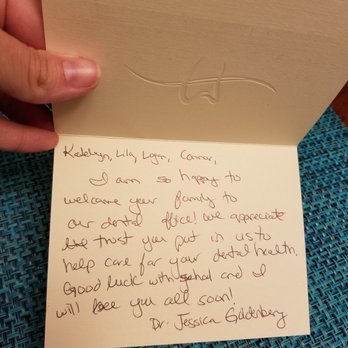 Katelyn, Lily, Logan, Connor,
I am so happy to
welcome your family to
our dental office! We appreciate
the trust you put in us to
help care for your dental health.
Good luck with school and I
will see you all soon!
Dr. Jessica Goldenberg